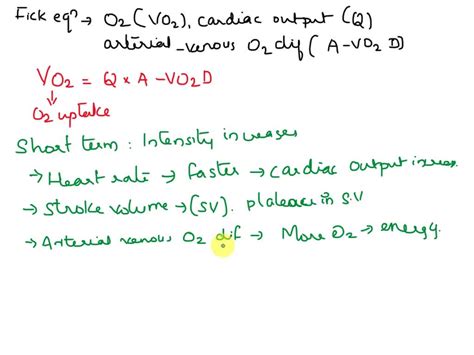 Fick eqn → O2 (VO2), cardiac output (Q)
arterial-venous O2 dif (A-VO2 D)
VO2 = Q × A - VO2D
↓
O2 uptake
Short term : Intensity increases
→ Heart rate → faster → cardiac output increas.
→ Stroke volume → (SV). plateau in S.V
→ Arterial venous O2 dif → More O2 → energy.